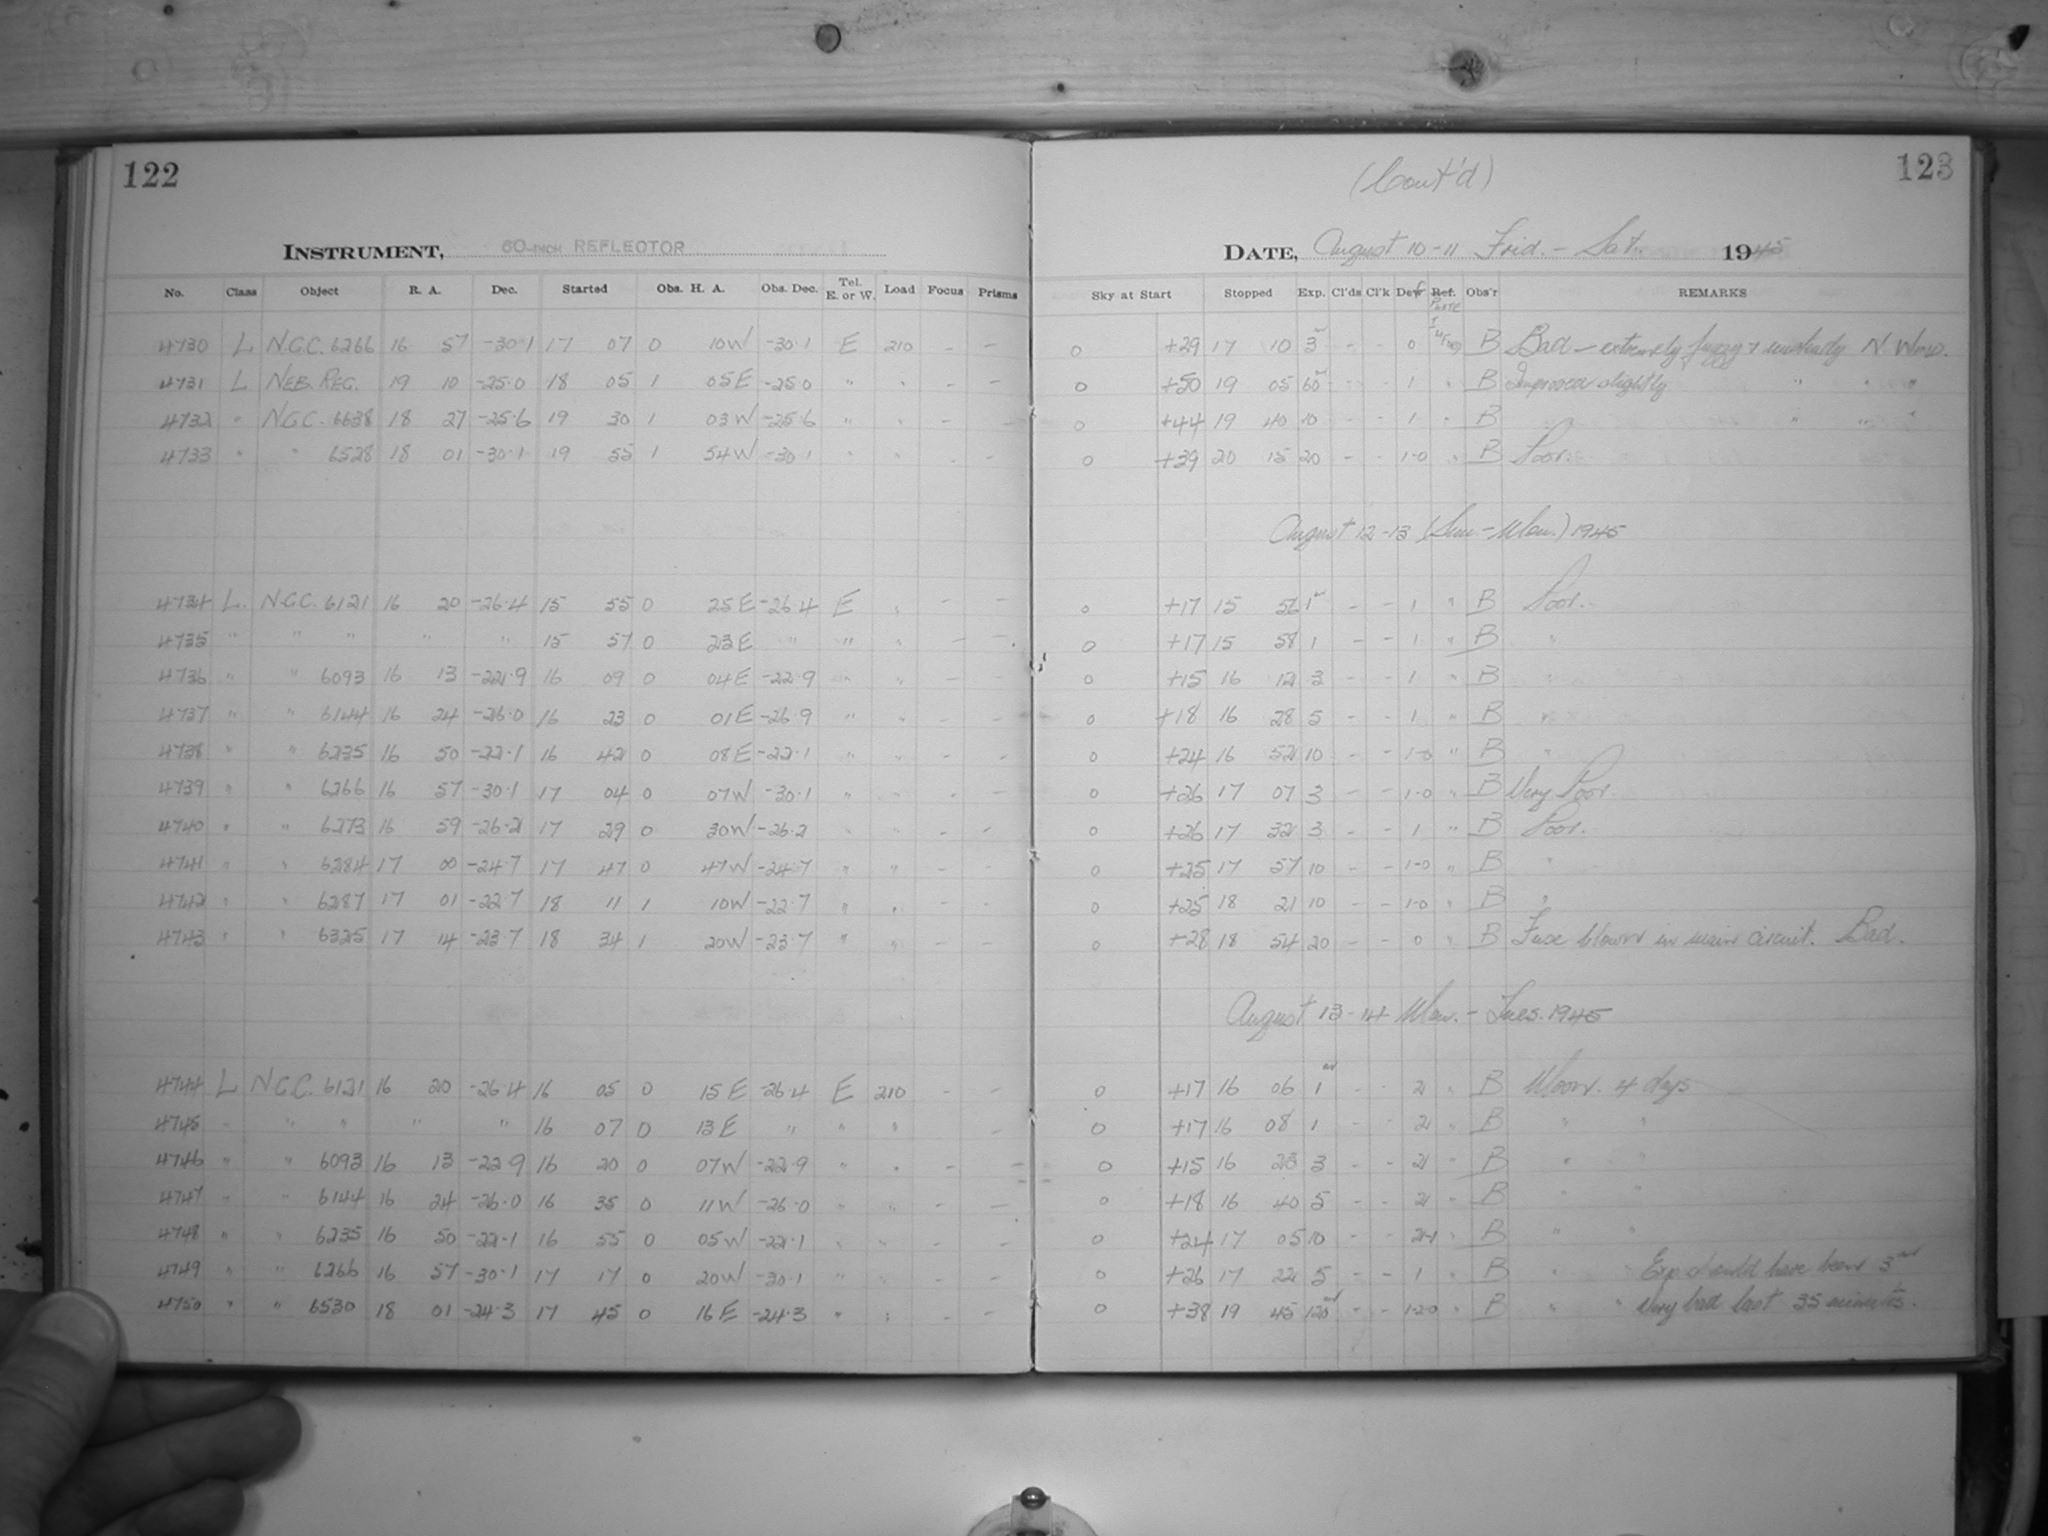 122
(Cont'd)
123
INSTRUMENT, 60-INCH REFLECTOR
DATE, August 10-11 Frid. - Sat. 1945
No. Class Object R. A. Dec. Started Obs. H. A. Obs. Dec. Tel. E. or W. Load Focus Prisms Sky at Start Stopped Exp. Cl'ds Cl'k Def Ref. Obs'r REMARKS
4730 L N.G.C. 6266 16 57 -30.1 17 07 0 10W -30.1 E 210 - - 0 +29 17 10 3 - - 0 B Bad - extremely fuzzy & unsteady N. Wind.
4731 L NEB. REG. 19 10 -25.0 18 05 1 05E -25.0 " " - - 0 +50 19 05 60 - - 1 " B Improved slightly " " "
4732 " N.G.C. 6638 18 27 -25.6 19 30 1 03W -25.6 " " - - 0 +44 19 40 10 - - 1 " B " " "
4733 " " 6528 18 01 -30.1 19 55 1 54W -30.1 " " - - 0 +39 20 15 20 - - 1-0 " B Poor.
August 12-13 (Sun - Mon.) 1945
4734 L. N.G.C. 6121 16 20 -26.4 15 55 0 25E -26.4 E " - - 0 +17 15 56 1 - - 1 " B Poor.
4735 " " " " " 15 57 0 23E " " " - - 0 +17 15 58 1 - - 1 " B "
4736 " " 6093 16 13 -22.9 16 09 0 04E -22.9 " " - - 0 +15 16 12 3 - - 1 " B "
4737 " " 6144 16 24 -26.0 16 23 0 01E -26.9 " " - - 0 +18 16 28 5 - - 1 " B "
4738 " " 6235 16 50 -22.1 16 42 0 08E -22.1 " " - - 0 +24 16 52 10 - - 1-0 " B "
4739 " " 6266 16 57 -30.1 17 04 0 07W -30.1 " " - - 0 +26 17 07 3 - - 1-0 " B Very Poor.
4740 " " 6273 16 59 -26.2 17 29 0 30W -26.2 " " - - 0 +26 17 32 3 - - 1 " B Poor.
4741 " " 6284 17 00 -24.7 17 47 0 47W -24.7 " " - - 0 +25 17 57 10 - - 1-0 " B "
4742 " " 6287 17 01 -22.7 18 11 1 10W -22.7 " " - - 0 +25 18 21 10 - - 1-0 " B "
4743 " " 6325 17 14 -23.7 18 34 1 20W -23.7 " " - - 0 +28 18 54 20 - - 0 " B Fuse blown in main circuit. Bad.
August 13-14 Mon. - Tues. 1945
4744 L N.G.C. 6121 16 20 -26.4 16 05 0 15E -26.4 E 210 - - 0 +17 16 06 1 - - 2 " B Moon. 4 days
4745 " " " " " 16 07 0 13E " " " - 0 +17 16 08 1 - - 2 " B " "
4746 " " 6093 16 13 -22.9 16 20 0 07W -22.9 " " - - 0 +15 16 23 3 - - 2 " B " "
4747 " " 6144 16 24 -26.0 16 35 0 11W -26.0 " " - - 0 +18 16 40 5 - - 2 " B " "
4748 " " 6235 16 50 -22.1 16 55 0 05W -22.1 " " - - 0 +24 17 05 10 - - 2-1 " B " "
4749 " " 6266 16 57 -30.1 17 17 0 20W -30.1 " " - - 0 +26 17 22 5 - - 1 " B " Exp. should have been 3
4750 " " 6530 18 01 -24.3 17 45 0 16E -24.3 " " - - 0 +38 19 45 120 - - 1-20 " B " " Very bad last 35 minutes.